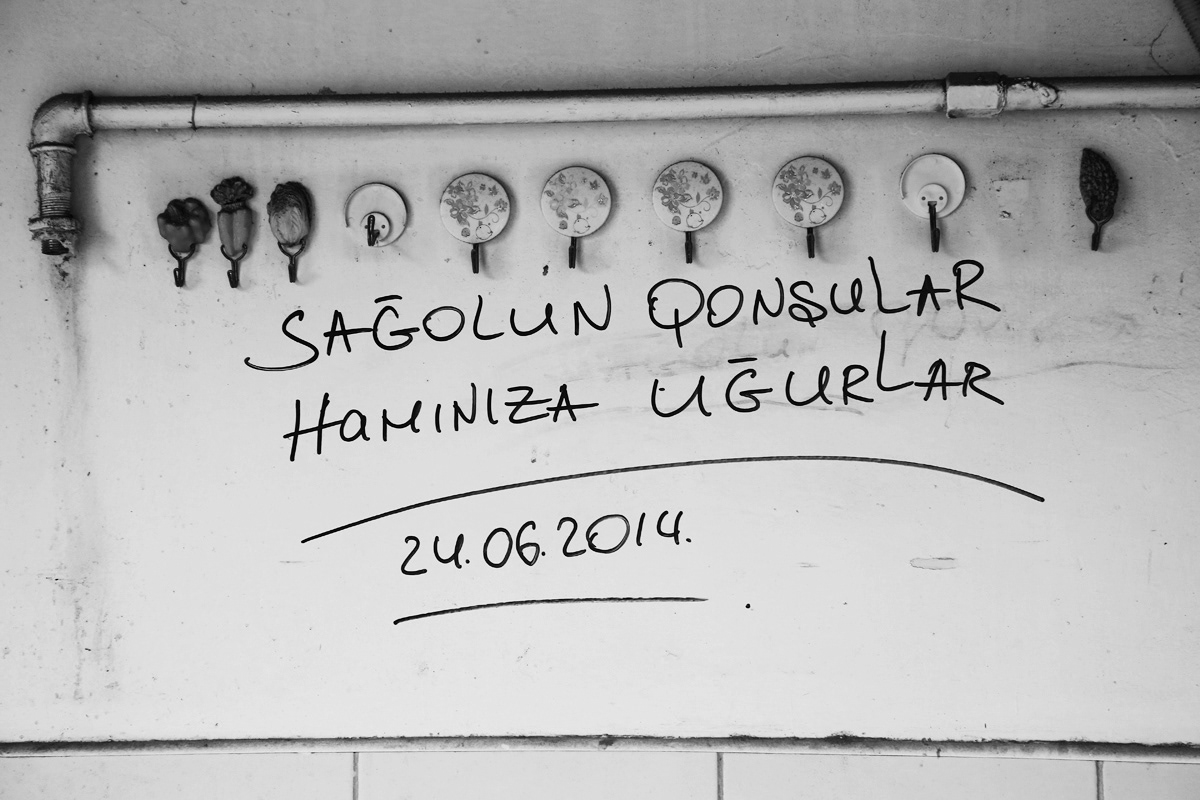 SAĞOLUN QONŞULAR
HAMINIZA UĞURLAR
24.06.2014.